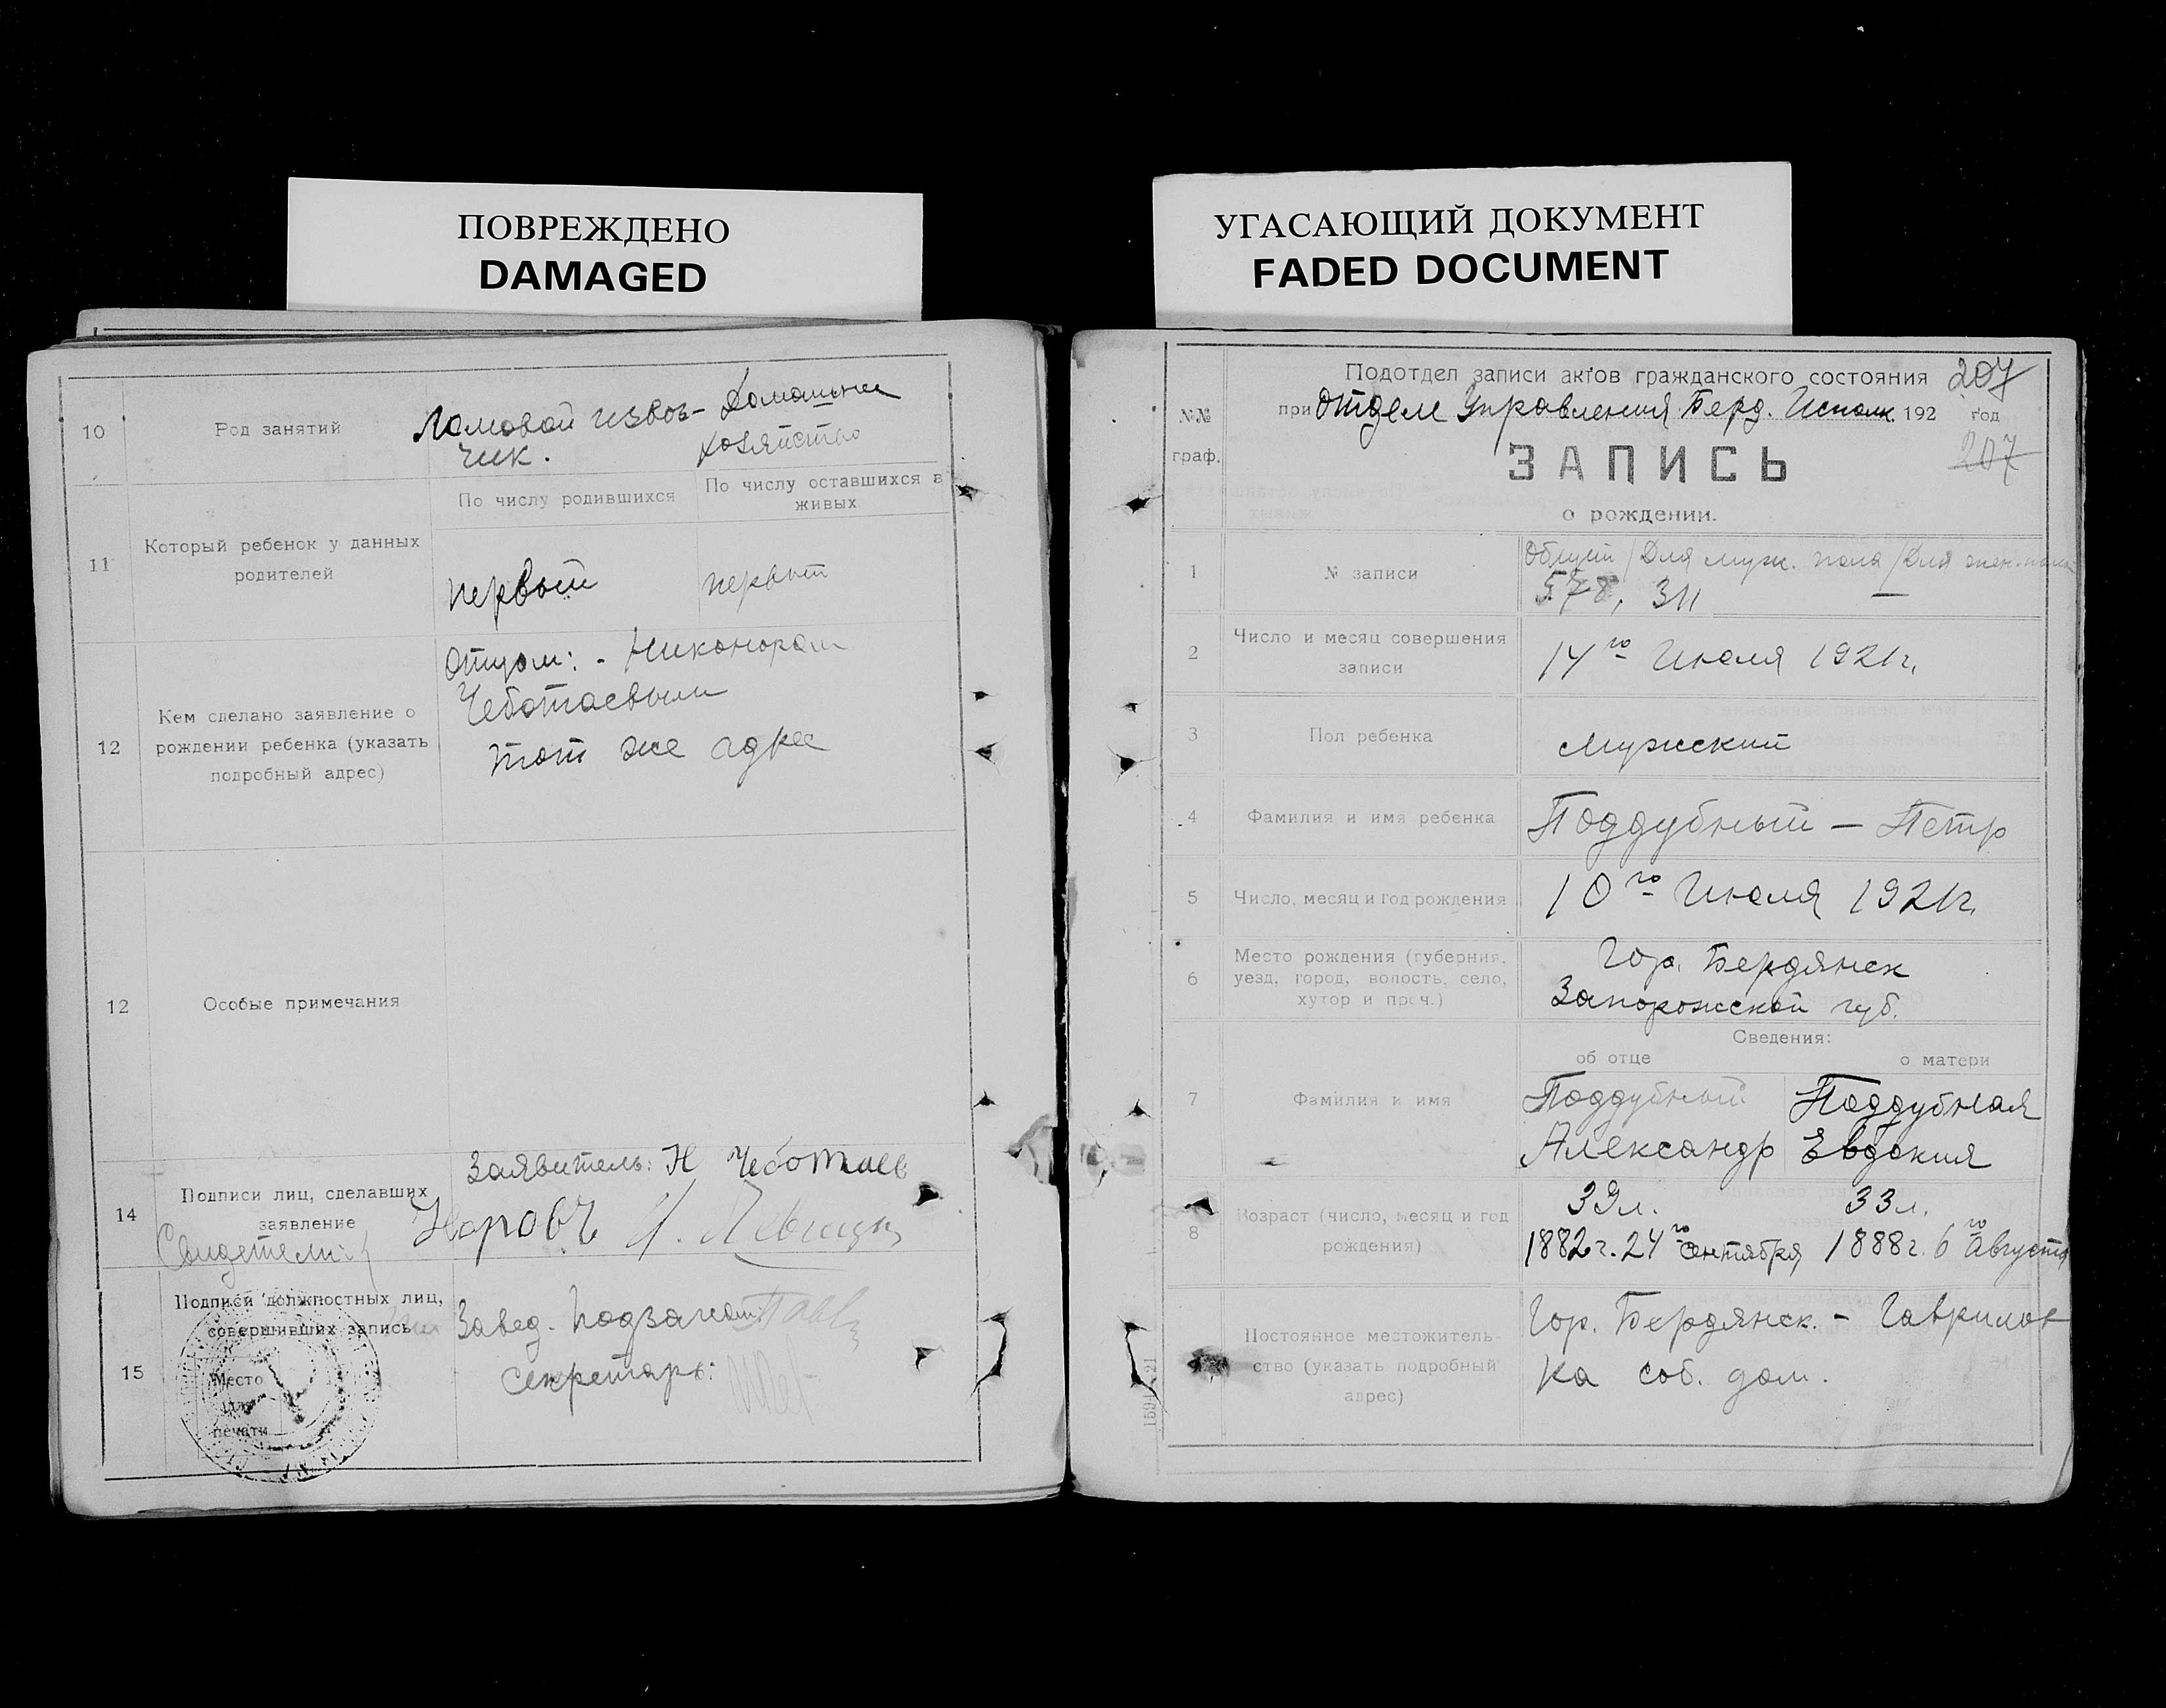 ПОВРЕЖДЕНО
DAMAGED
10
Род занятий
Ломовой извоз-
чик.
Домашнее
хозяйство
11
Который ребенок у данных
родителей
По числу родившихся
По числу оставшихся в
живых
первый
первый
12
Кем сделано заявление о
рождении ребенка (указать
подробный адрес)
Отцом: - Никонором
Чеботаевым
тот же адрес
12
Особые примечания
14
Подписи лиц, сделавших
заявление
Свидетели:
Заявитель: Н Чеботаев
15
Подписи должностных лиц,
совершивших запись
Место
для
печати
Завед. Подзагсом:
Секретарь:
УГАСАЮЩИЙ ДОКУМЕНТ
FADED DOCUMENT
№№
граф.
Подотдел записи актов гражданского состояния
207
при Отделе Управления Берд. Исполк. 192 год
207
ЗАПИСЬ
о рождении.
1
№ записи
Общий / Для муж. пола / Для жен. пола
578, 311 —
2
Число и месяц совершения
записи
14го Июля 1921г.
3
Пол ребенка
Мужский
4
Фамилия и имя ребенка
Поддубный — Петр
5
Число, месяц и год рождения
10го Июля 1921г.
6
Место рождения (губерния,
уезд, город, волость, село,
хутор и проч.)
Гор. Бердянск
Запорожской губ.
Сведения:
об отце
о матери
7
Фамилия и имя
Поддубный
Александр
Поддубная
Евдокия
8
Возраст (число, месяц и год
рождения)
39л.
1882г. 24го сентября
33л.
1888г. 6го Августа
Постоянное местожитель-
ство (указать подробный
адрес)
Гор. Бердянск. - Гаврилов
ка соб. дом.